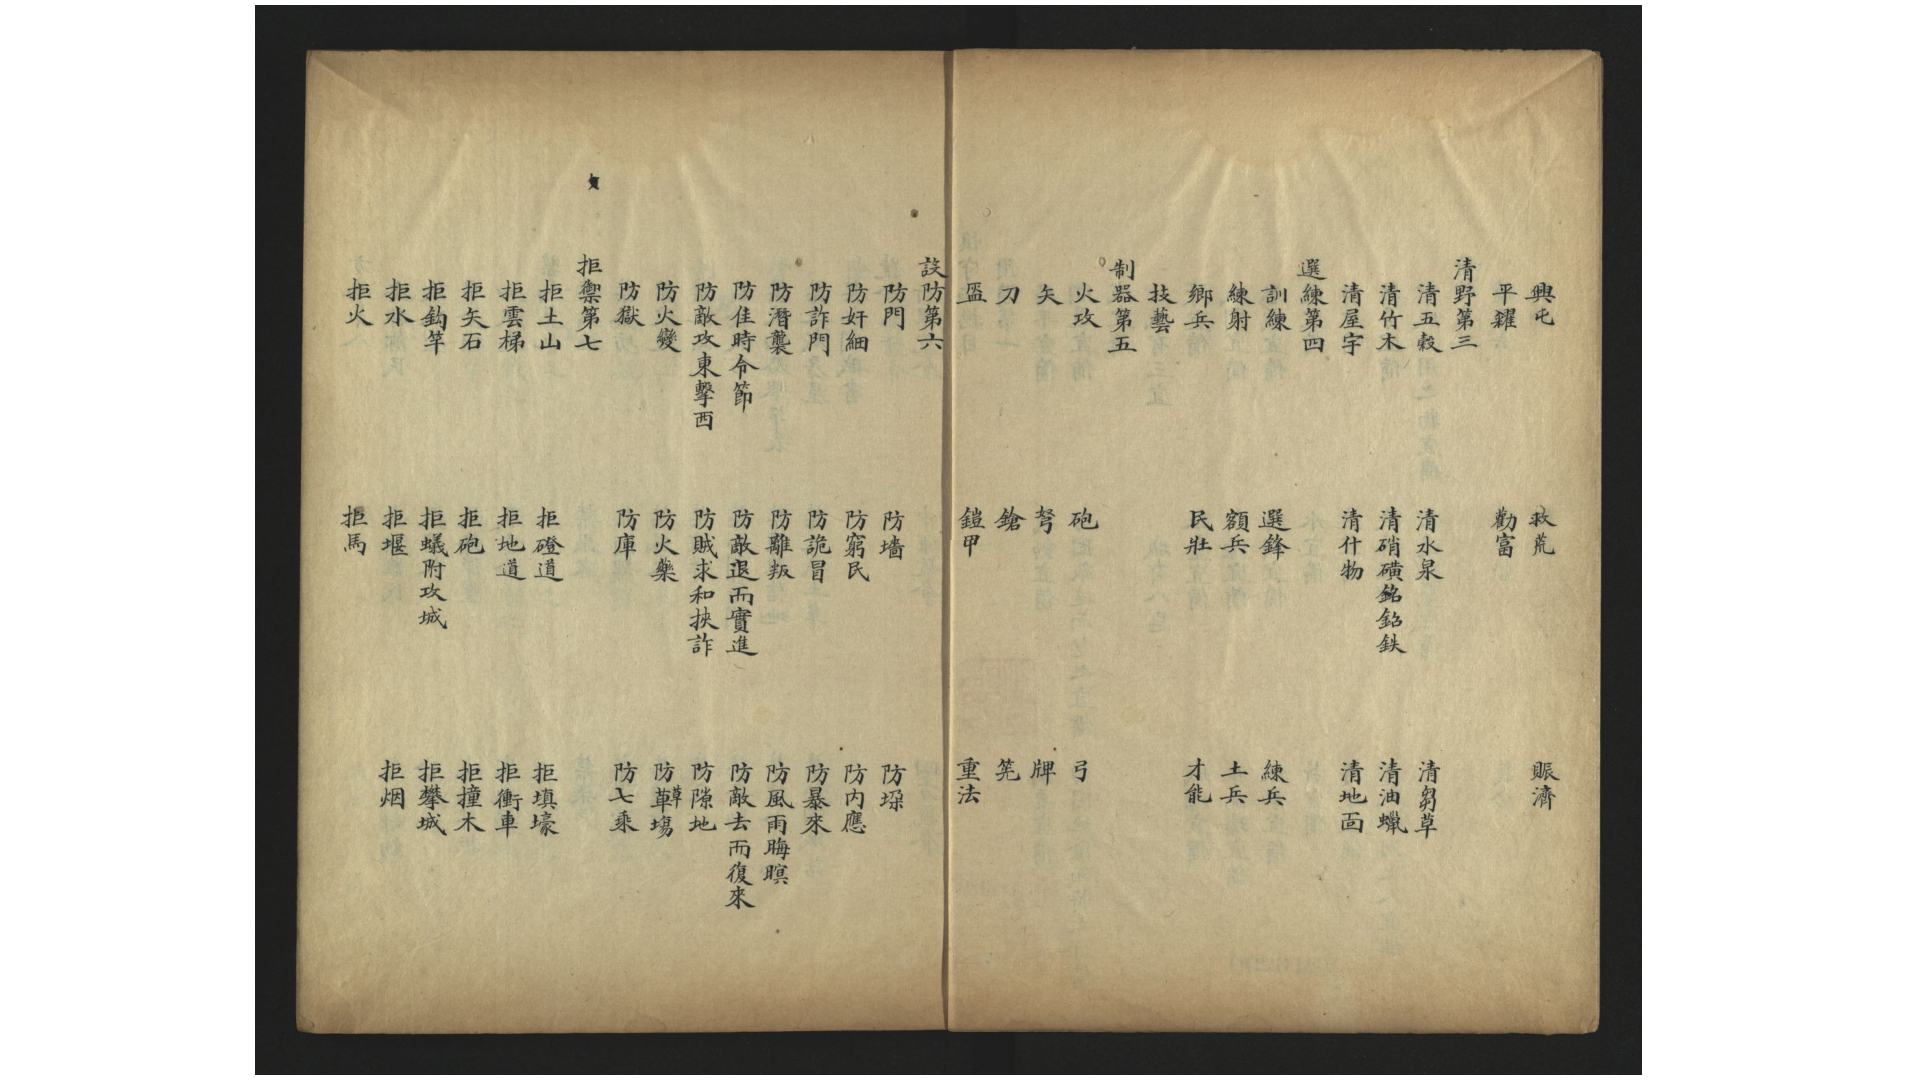 興屯 救荒 賑濟
平糴 勸富
清野第三
清五穀 清水泉 清芻草
清竹木 清硝磺銘鉛鉄 清油蠟
清屋宇 清什物 清地面
選練第四
訓練 選鋒 練兵
練射 額兵 土兵
鄉兵 民壯 才能
技藝
制器第五
火攻 砲 弓
矢 弩 牌
刀 鎗 筅
盔 鎧甲 重法
設防第六
防門 防墻 防垛
防奸細 防窮民 防內應
防詐門 防詭冒 防暴來
防潛襲 防離叛 防風雨晦暝
防佳時令節 防敵退而實進 防敵去而復來
防敵攻東擊西 防賊求和挾詐 防隙地
防火變 防火藥 防草塲
防獄 防庫 防七乘
拒禦第七
拒土山 拒磴道 拒填壕
拒雲梯 拒地道 拒衝車
拒矢石 拒砲 拒撞木
拒鈎竿 拒蟻附攻城 拒攀城
拒水 拒堰 拒烟
拒火 拒馬